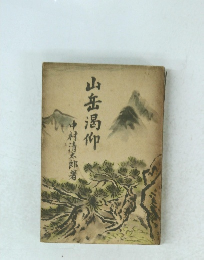 山岳渇仰
中村清太郎著